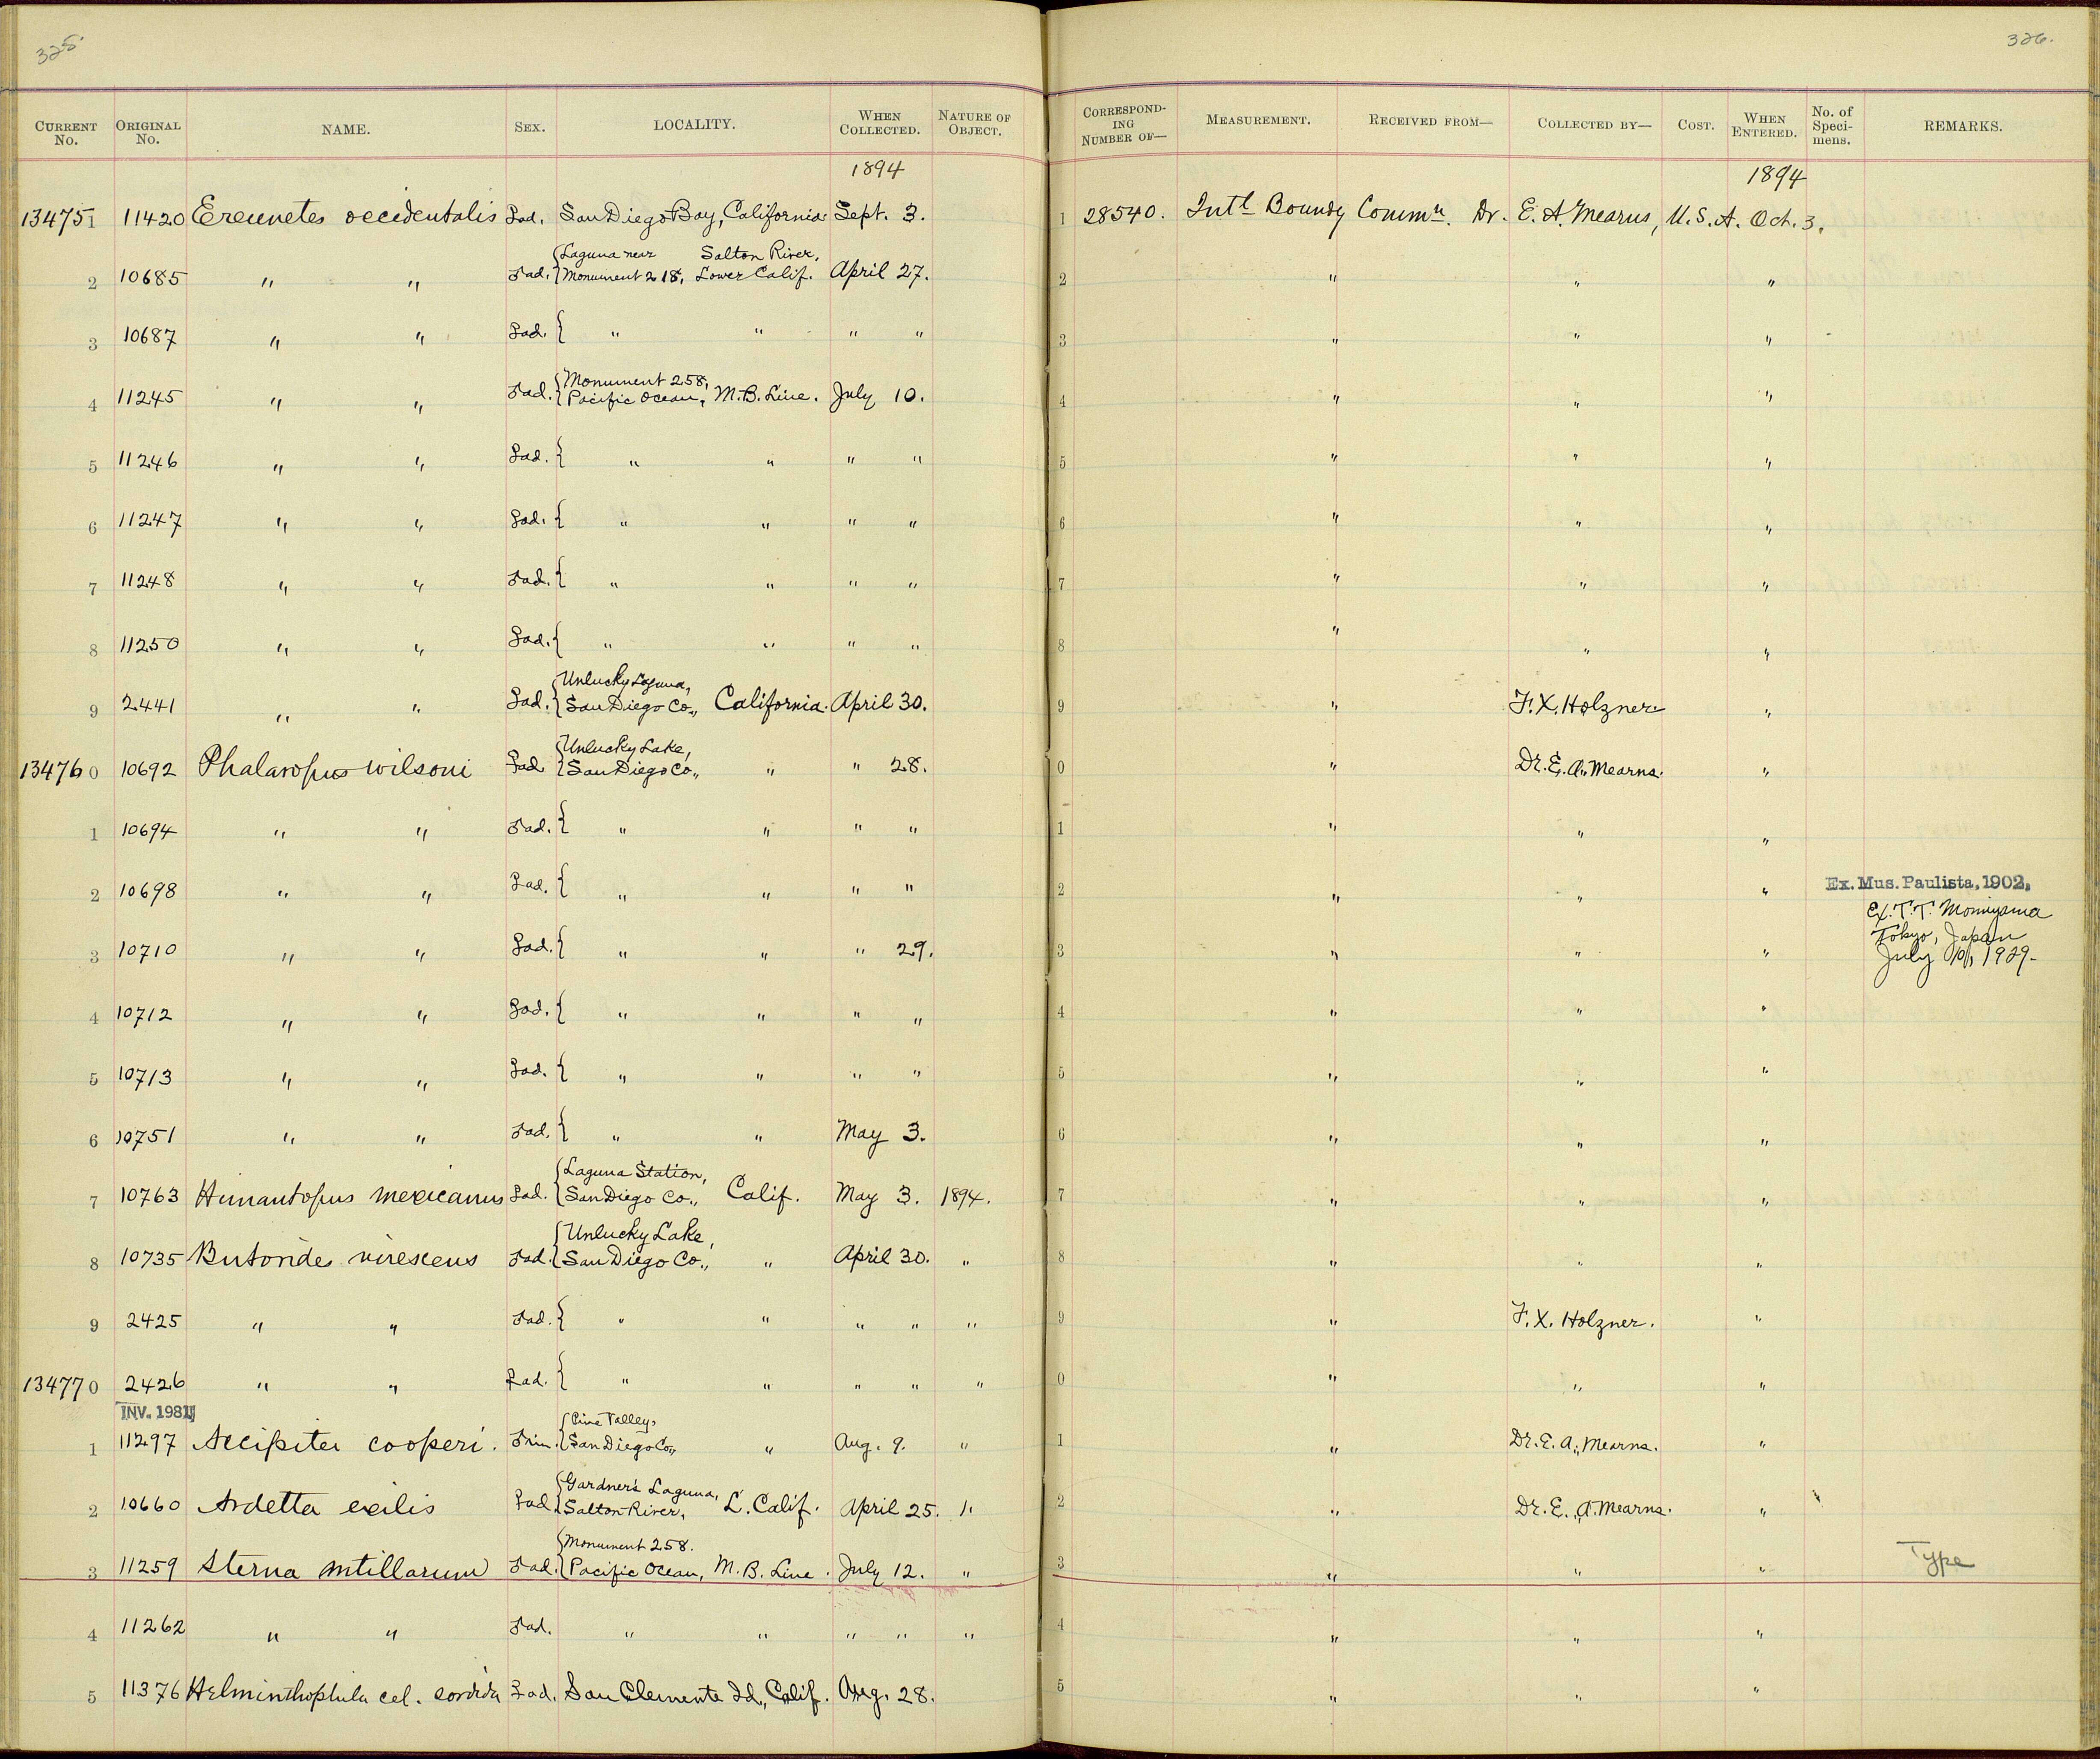 325.
CURRENT No. ORIGINAL No. NAME. SEX. LOCALITY. WHEN COLLECTED. NATURE OF OBJECT.
1894
134751 11420 Ereunetes occidentalis ad. San Diego Bay, California. Sept. 3.
2 10685 " " ad. { Laguna near Salton River, Monument 218, Lower Calif. April 27.
3 10687 " " ad. { " " " "
4 11245 " " ad. { Monument 258, Pacific Ocean, M.B. Line. July 10.
5 11246 " " ad. { " " " "
6 11247 " " ad. { " " " "
7 11248 " " ad. { " " " "
8 11250 " " ad. { " " " "
9 2441 " " ad. { Unlucky Laguna, San Diego Co., California. April 30.
134760 10692 Phalaropus wilsoni ad. { Unlucky Lake, San Diego Co., " " 28.
1 10694 " " ad. { " " " "
2 10698 " " ad. { " " " "
3 10710 " " ad. { " " " 29.
4 10712 " " ad. { " " " "
5 10713 " " ad. { " " " "
6 10751 " " ad. { " " May 3.
7 10763 Himantopus mexicanus ad. { Laguna Station, San Diego Co., Calif. May 3. 1894.
8 10735 Butorides virescens ad. { Unlucky Lake, San Diego Co., " April 30. "
9 2425 " " ad. { " " " " "
134770 2426 " " ad. { " " " " "
INV. 1981
1 11297 Accipiter cooperi. im. { Pine Valley, San Diego Co., " Aug. 9. "
2 10660 Ardetta exilis ad. { Gardner's Laguna, Salton River, L. Calif. April 25. "
3 11259 Sterna antillarum ad. { Monument 258. Pacific Ocean, M.B. Line. July 12. "
4 11262 " " ad. " " " " "
5 11376 Helminthophila cel. sordida ad. San Clemente Id., Calif. Aug. 28.
326.
CORRESPONDING NUMBER OF— MEASUREMENT. RECEIVED FROM— COLLECTED BY— COST. WHEN ENTERED. No. of Specimens. REMARKS.
1894
1 28540. Intl Boundy Commn. Dr. E. A. Mearns, U.S.A. Oct. 3.
2 " " "
3 " " "
4 " " "
5 " " "
6 " " "
7 " " "
8 " " "
9 " F. X. Holzner. "
0 " Dr. E. A. Mearns. "
1 " " "
2 " " " Ex. Mus. Paulista, 1902.
Ex. T.T. Momiyama
Tokyo, Japan
3 " " " July 10, 1929.
4 " " "
5 " " "
6 " " "
7 " " "
8 " " "
9 " F. X. Holzner. "
0 " " "
1 " Dr. E. A. Mearns. "
2 " Dr. E. A. Mearns. "
3 " " " Type
4 " " "
5 " " "